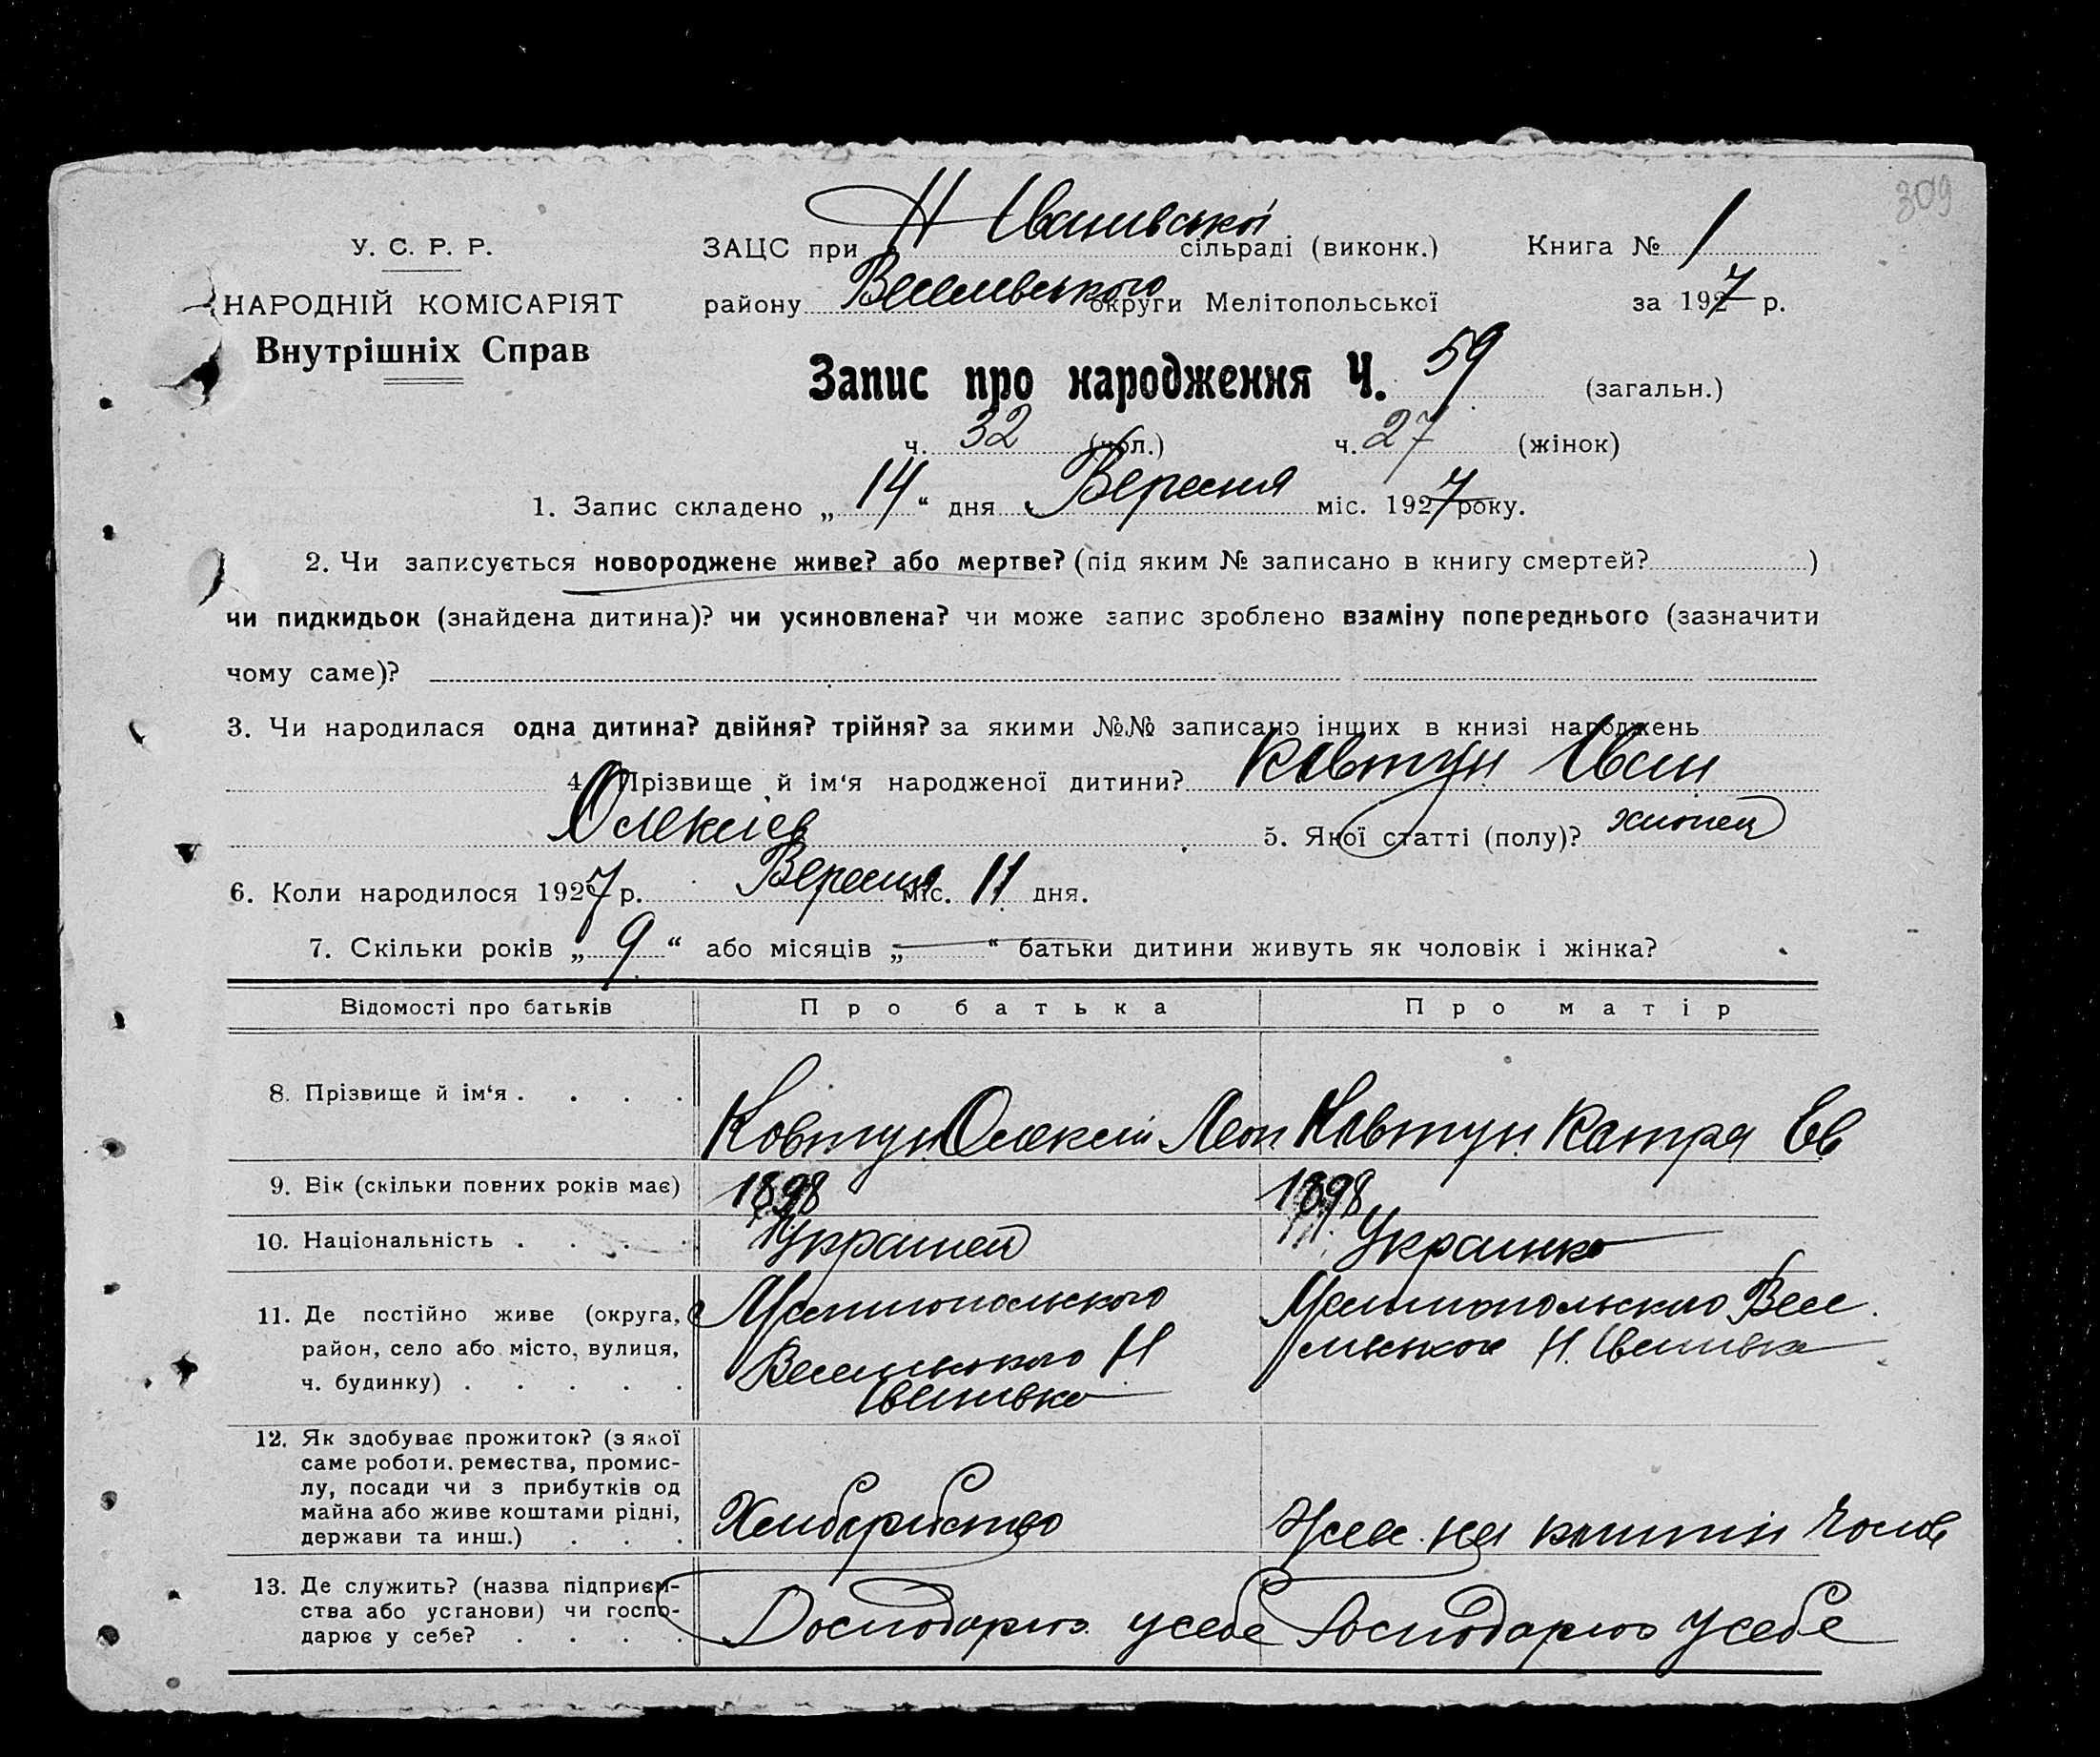 309
Н Іванівській
У. С. Р. Р. ЗАЦС при сільраді (виконк.) Книга № 1
НАРОДНІЙ КОМІСАРІЯТ району Веселевського округи Мелітопольської за 1927 р.
Внутрішніх Справ
Запис про народження Ч. 59 (загальн.)
ч. 32 (чол.) ч. 27 (жінок)
1. Запис складено „ 14 “ дня Вересня міс. 1927 року.
2. Чи записується новороджене живе? або мертве? (під яким № записано в книгу смертей? )
чи пидкидьок (знайдена дитина)? чи усиновлена? чи може запис зроблено взаміну попереднього (зазначити
чому саме)?
3. Чи народилася одна дитина? двійня? трійня? за якими №№ записано інших в книзі народжень
4. Прізвище й ім‘я народженої дитини? Ковтун Іван
Олексіев 5. Якої статті (полу)? хлопец
6. Коли народилося 1927 р. Вересня міс. 11 дня.
7. Скільки років „ 9 “ або місяців „ — “ батьки дитини живуть як чоловік і жінка?
Відомості про батьків Про батька Про матір
8. Прізвище й ім‘я . . . . Ковтун Олексій Леон Ковтун Катря Ев
9. Вік (скільки повних років має) 1898 1898
10. Національність . . . . Украинец Украинка
11. Де постійно живе (округа, Мелитопольского Мелитопольского Весе
район, село або місто, вулиця, Н Н. Іванивка
ч. будинку) . . . . . Іванивка
12. Як здобуває прожиток? (з якої
саме роботи, ремества, промис-
лу, посади чи з прибутків од
майна або живе коштами рідні, Хлиборобство на кошти Чолов
держави та инш.) . . .
13. Де служить? (назва підприєм-
ства або установи) чи госпо- Господарює усебе Господарює усебе
дарює у себе? . . . .